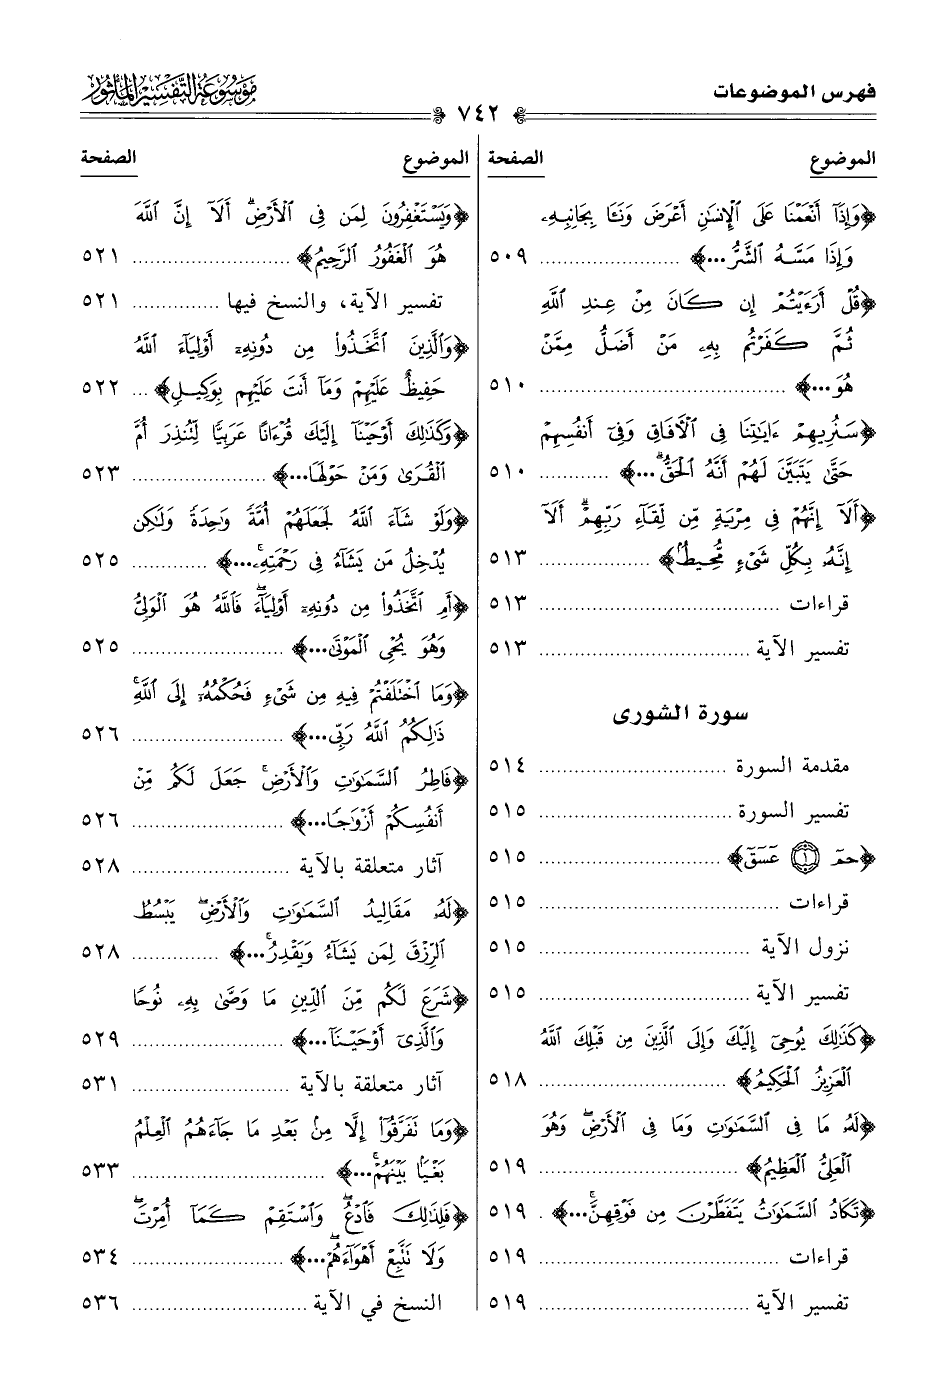 فهرس الموضوعات
موسوعة التفسير المأثور
٧٤٢
الموضوع الصفحة
﴿وَإِذَآ أَنْعَمْنَا عَلَى ٱلْإِنسَٰنِ أَعْرَضَ وَنَـَٔا بِجَانِبِهِۦ
وَإِذَا مَسَّهُ ٱلشَّرُّ...﴾ ........ ٥٠٩
﴿قُلْ أَرَءَيْتُمْ إِن كَانَ مِنْ عِندِ ٱللَّهِ
ثُمَّ كَفَرْتُم بِهِۦ مَنْ أَضَلُّ مِمَّنْ
هُوَ...﴾ ........ ٥١٠
﴿سَنُرِيهِمْ ءَايَٰتِنَا فِى ٱلْأَفَاقِ وَفِىٓ أَنفُسِهِمْ
حَتَّىٰ يَتَبَيَّنَ لَهُمْ أَنَّهُ ٱلْحَقُّ ۗ...﴾ ........ ٥١٠
﴿أَلَآ إِنَّهُمْ فِى مِرْيَةٍ مِّن لِّقَآءِ رَبِّهِمْ ۗ أَلَآ
إِنَّهُۥ بِكُلِّ شَىْءٍ مُّحِيطٌۢ﴾ ........ ٥١٣
قراءات ........ ٥١٣
تفسير الآية ........ ٥١٣
سورة الشورى
مقدمة السورة ........ ٥١٤
تفسير السورة ........ ٥١٥
﴿حمٓ ۝١ عٓسٓقٓ﴾ ........ ٥١٥
قراءات ........ ٥١٥
نزول الآية ........ ٥١٥
تفسير الآية ........ ٥١٥
﴿كَذَٰلِكَ يُوحِىٓ إِلَيْكَ وَإِلَى ٱلَّذِينَ مِن قَبْلِكَ ٱللَّهُ
ٱلْعَزِيزُ ٱلْحَكِيمُ﴾ ........ ٥١٨
﴿لَهُۥ مَا فِى ٱلسَّمَٰوَٰتِ وَمَا فِى ٱلْأَرْضِ ۖ وَهُوَ
ٱلْعَلِىُّ ٱلْعَظِيمُ﴾ ........ ٥١٩
﴿تَكَادُ ٱلسَّمَٰوَٰتُ يَتَفَطَّرْنَ مِن فَوْقِهِنَّ ۚ...﴾ . ٥١٩
قراءات ........ ٥١٩
تفسير الآية ........ ٥١٩
الموضوع الصفحة
﴿وَيَسْتَغْفِرُونَ لِمَن فِى ٱلْأَرْضِ ۗ أَلَآ إِنَّ ٱللَّهَ
هُوَ ٱلْغَفُورُ ٱلرَّحِيمُ﴾ ........ ٥٢١
تفسير الآية، والنسخ فيها ........ ٥٢١
﴿وَٱلَّذِينَ ٱتَّخَذُوا۟ مِن دُونِهِۦٓ أَوْلِيَآءَ ٱللَّهُ
حَفِيظٌ عَلَيْهِمْ وَمَآ أَنتَ عَلَيْهِم بِوَكِيلٍ﴾ ... ٥٢٢
﴿وَكَذَٰلِكَ أَوْحَيْنَآ إِلَيْكَ قُرْءَانًا عَرَبِيًّا لِّتُنذِرَ أُمَّ
ٱلْقُرَىٰ وَمَنْ حَوْلَهَا...﴾ ........ ٥٢٣
﴿وَلَوْ شَآءَ ٱللَّهُ لَجَعَلَهُمْ أُمَّةً وَٰحِدَةً وَلَٰكِن
يُدْخِلُ مَن يَشَآءُ فِى رَحْمَتِهِۦ ۚ...﴾ ........ ٥٢٥
﴿أَمِ ٱتَّخَذُوا۟ مِن دُونِهِۦٓ أَوْلِيَآءَ ۖ فَٱللَّهُ هُوَ ٱلْوَلِىُّ
وَهُوَ يُحْىِ ٱلْمَوْتَىٰ...﴾ ........ ٥٢٥
﴿وَمَا ٱخْتَلَفْتُمْ فِيهِ مِن شَىْءٍ فَحُكْمُهُۥٓ إِلَى ٱللَّهِ ۚ
ذَٰلِكُمُ ٱللَّهُ رَبِّى...﴾ ........ ٥٢٦
﴿فَاطِرُ ٱلسَّمَٰوَٰتِ وَٱلْأَرْضِ ۚ جَعَلَ لَكُم مِّنْ
أَنفُسِكُمْ أَزْوَٰجًا...﴾ ........ ٥٢٦
آثار متعلقة بالآية ........ ٥٢٨
﴿لَهُۥ مَقَالِيدُ ٱلسَّمَٰوَٰتِ وَٱلْأَرْضِ ۖ يَبْسُطُ
ٱلرِّزْقَ لِمَن يَشَآءُ وَيَقْدِرُ ۚ...﴾ ........ ٥٢٨
﴿شَرَعَ لَكُم مِّنَ ٱلدِّينِ مَا وَصَّىٰ بِهِۦ نُوحًا
وَٱلَّذِىٓ أَوْحَيْنَآ...﴾ ........ ٥٢٩
آثار متعلقة بالآية ........ ٥٣١
﴿وَمَا تَفَرَّقُوٓا۟ إِلَّا مِنۢ بَعْدِ مَا جَآءَهُمُ ٱلْعِلْمُ
بَغْيًۢا بَيْنَهُمْ ۚ...﴾ ........ ٥٣٣
﴿فَلِذَٰلِكَ فَٱدْعُ ۖ وَٱسْتَقِمْ كَمَآ أُمِرْتَ ۖ
وَلَا تَتَّبِعْ أَهْوَآءَهُمْ ۖ...﴾ ........ ٥٣٤
النسخ في الآية ........ ٥٣٦